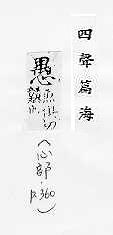 四聲篇海
愚
(心部
p.360)